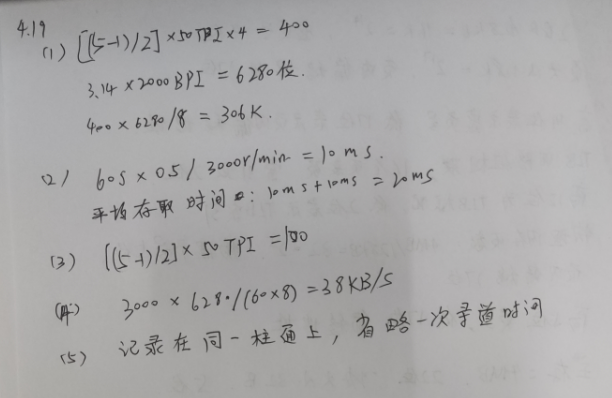 4.19
(1) [(5-1)/2]×50TPI×4=400
3.14×2000BPI=6280位.
400×6280/8=306K.
(2) 60s×0.5/3000r/min=10ms.
平均存取时间: 10ms+10ms=20ms
(3) [(5-1)/2]×50TPI=100
(4) 3000×6280/(60×8)=38KB/S
(5) 记录在同一柱面上，省略一次寻道时间